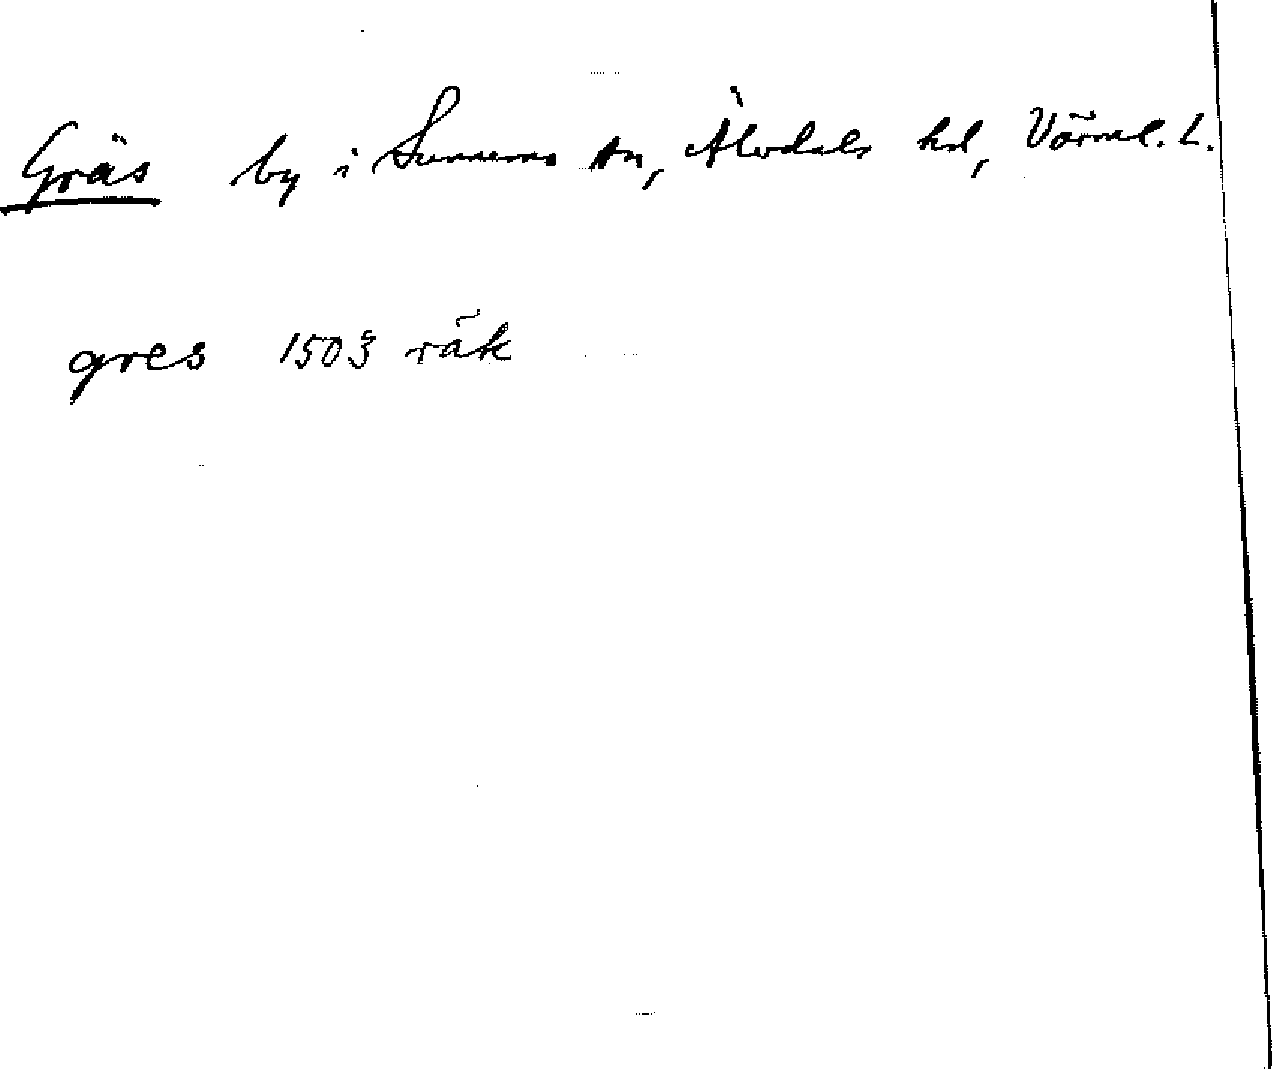 Gräs by i Sunnemo sn, Älvdals hd, Värml. L.
gres 1503 räk